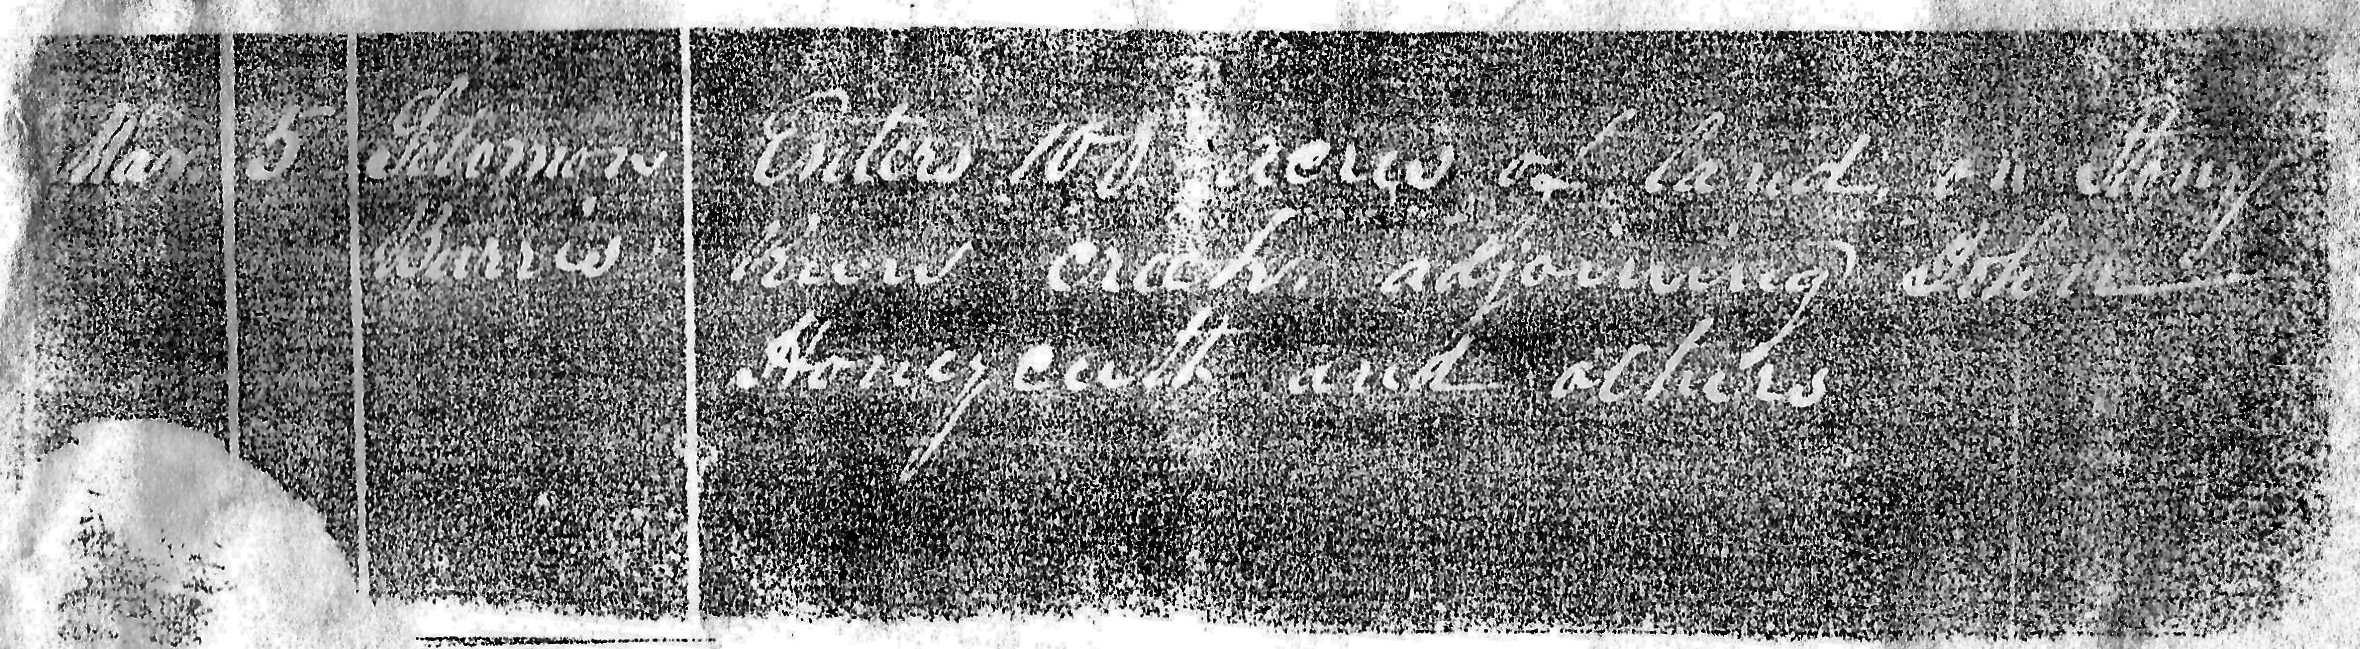 Mar. 5 Solomon Enters 100 acres of land on Stony
Burris Run creek adjoining John
Honeycutt and others